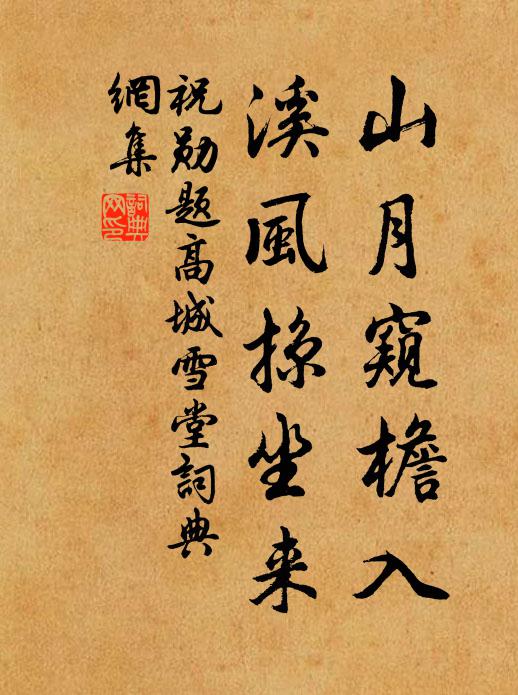 山月窺檐入
溪風掠坐来
祝勋题高城雪堂詞典
網集
詞典
网印